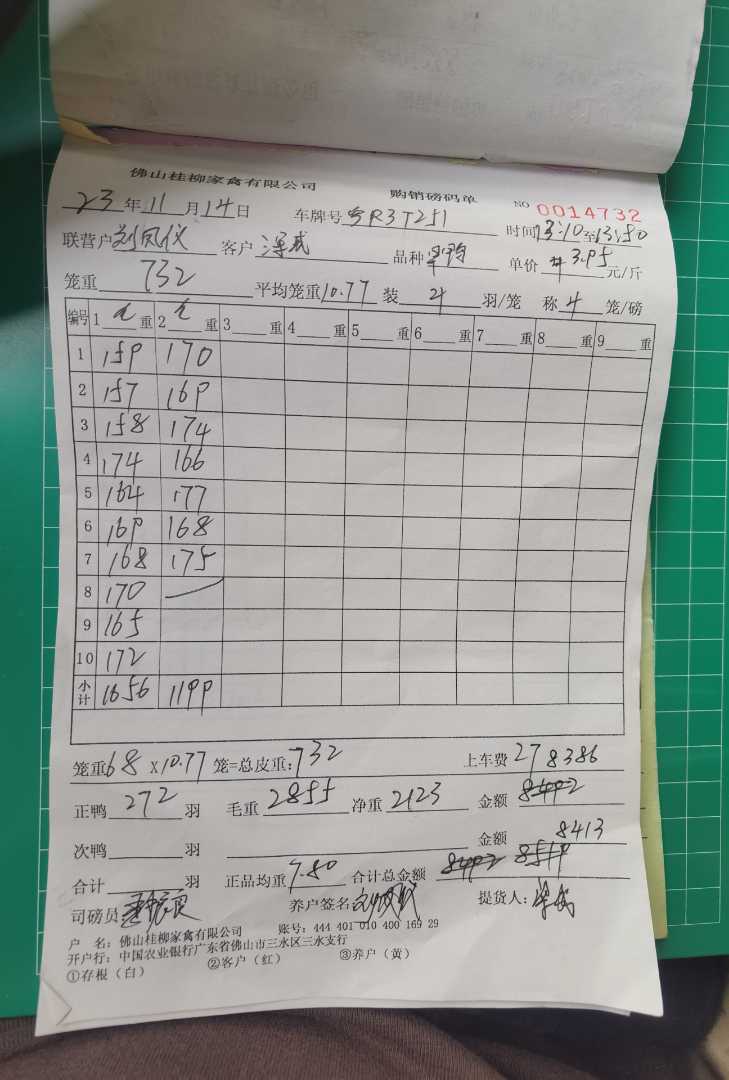 佛山桂柳家禽有限公司 购销磅码单 NO 0014732
23年11月14日 车牌号粤R3T251 时间13:10至13:50
联营户刘凤仪 客户 品种 单价 3.95 元/斤
笼重 732 平均笼重10.77 装 4 羽/笼 称 4 笼/磅
编号 1 重 2 重 3 重 4 重 5 重 6 重 7 重 8 重 9 重
1 159 170
2 157 169
3 158 174
4 174 166
5 164 177
6 169 168
7 168 175
8 170
9 165
10 172
小计 1656 1199
笼重68 X10.77 笼=总皮重:732 上车费 27 8386
正鸭 272 羽 毛重 2855 净重 2123 金额 8492
次鸭 羽 金额 8413
合计 羽 正品均重 7.80 合计总金额 8492 8519
司磅员 养户签名 提货人:
户 名：佛山桂柳家禽有限公司 账号：444 401 010 400 169 29
开户行：中国农业银行广东省佛山市三水区三水支行
①存根（白） ②客户（红） ③养户（黄）